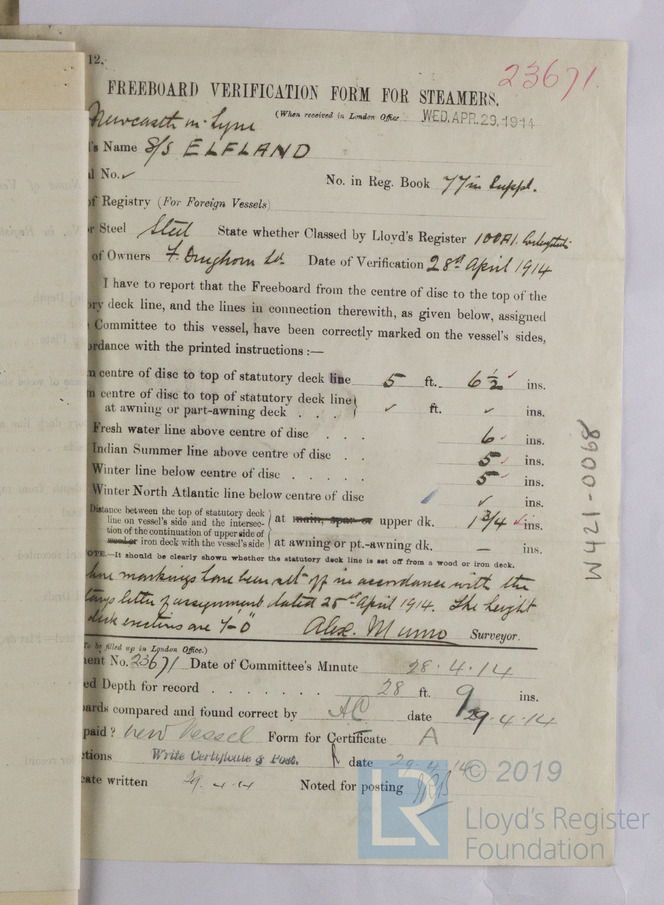 12.
23671.
FREEBOARD VERIFICATION FORM FOR STEAMERS.
(When received in London Office WED. APR. 29. 1914
Newcastle on Tyne
's Name S/S ELFLAND
l No. ✓ No. in Reg. Book 77 in Suppl.
of Registry (For Foreign Vessels)
r Steel Steel State whether Classed by Lloyd's Register 100A1.
of Owners F. Drughorn Ld. Date of Verification 28th April 1914
I have to report that the Freeboard from the centre of disc to the top of the
ory deck line, and the lines in connection therewith, as given below, assigned
Committee to this vessel, have been correctly marked on the vessel's sides,
ordance with the printed instructions :—
m centre of disc to top of statutory deck line 5 ft. 6½ ✓ ins.
m centre of disc to top of statutory deck line
at awning or part-awning deck . . . ✓ ft. ✓ ins.
Fresh water line above centre of disc . . . 6 ✓ ins.
Indian Summer line above centre of disc . . 5 ✓ ins.
Winter line below centre of disc . . . . . 5 ✓ ins.
Winter North Atlantic line below centre of disc ✓ ins.
Distance between the top of statutory deck
line on vessel's side and the intersec-
tion of the continuation of upper side of
wood or iron deck with the vessel's side
at main, spar or upper dk. 1 3/4 ✓ ins.
at awning or pt.-awning dk. — ins.
OTE.—It should be clearly shown whether the statutory deck line is set off from a wood or iron deck.
markings have been set off in accordance with the
letter of assignment dated 25th April 1914. The height
deck erections are 7-0"
Alex. Munro Surveyor.
To be filled up in London Office.)
ment No. 23671 Date of Committee's Minute 28.4.14
ed Depth for record . . . . . . . 28 ft. 9 ins.
ards compared and found correct by AC date 29.4.14
paid? New Vessel Form for Certificate A
ctions Write Certificate & Post. date 29.4.14
ate written 29.4.14 Noted for posting
W421-0068
LR
© 2019
Lloyd's Register
Foundation